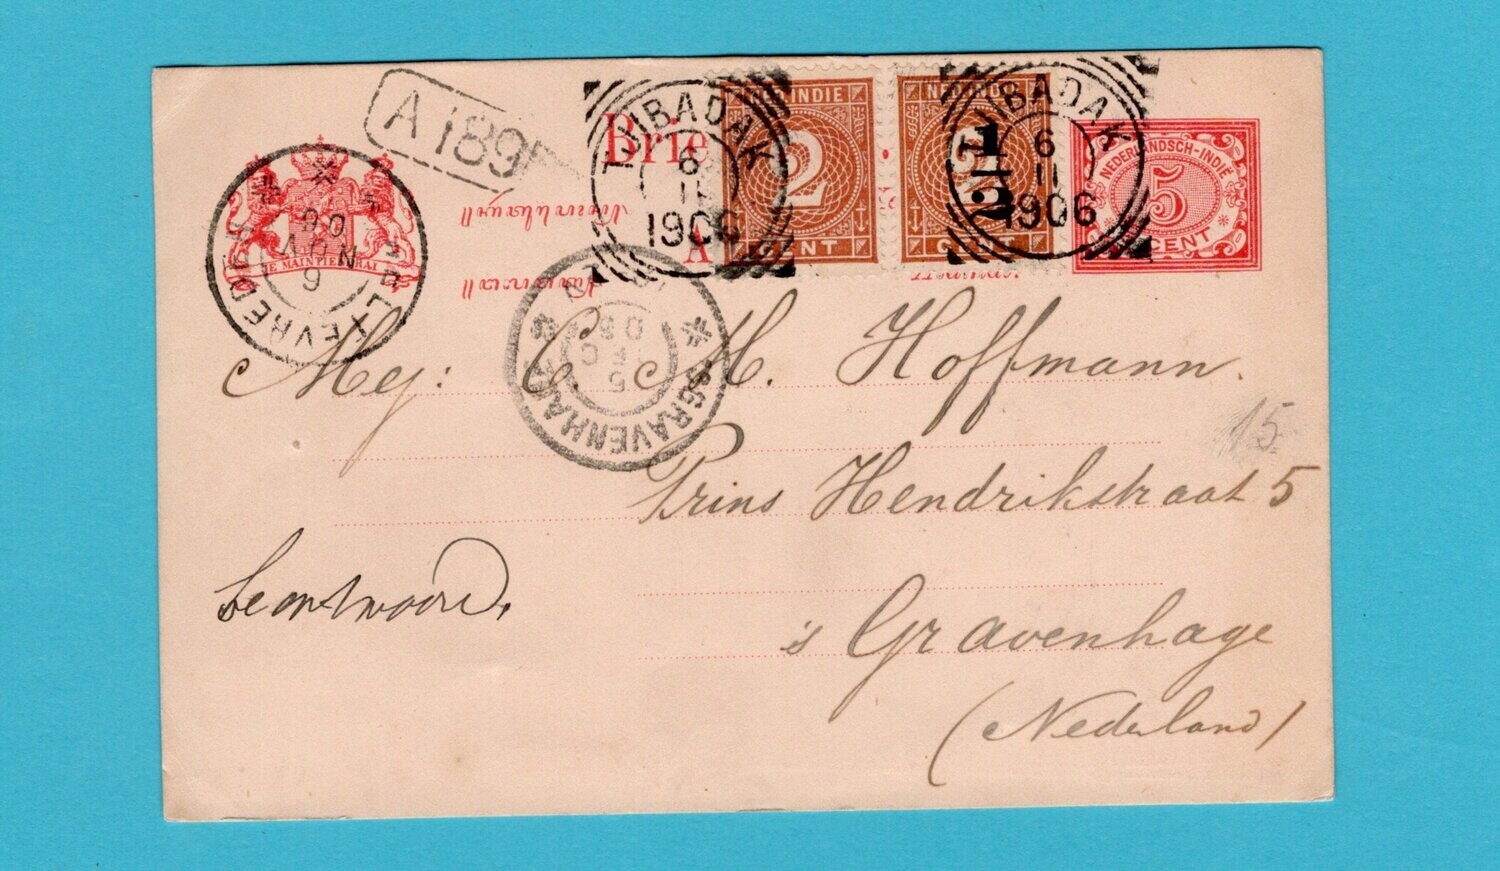 A 189
Brie
JE MAINTIENDRAI
TJIBADAK
6
11
1906
NED. INDIE
2
CENT
1/2
CENT
TJIBADAK
6
11
1906
NEDERLANDSCH-INDIË
5
CENT
WELTEVREDEN
9
NOV
06
'S GRAVENHAGE
5
DEC
06
Mej: C. M. Hoffmann.
15
Prins Hendrikstraat 5
beantwoord.
's Gravenhage
(Nederland)